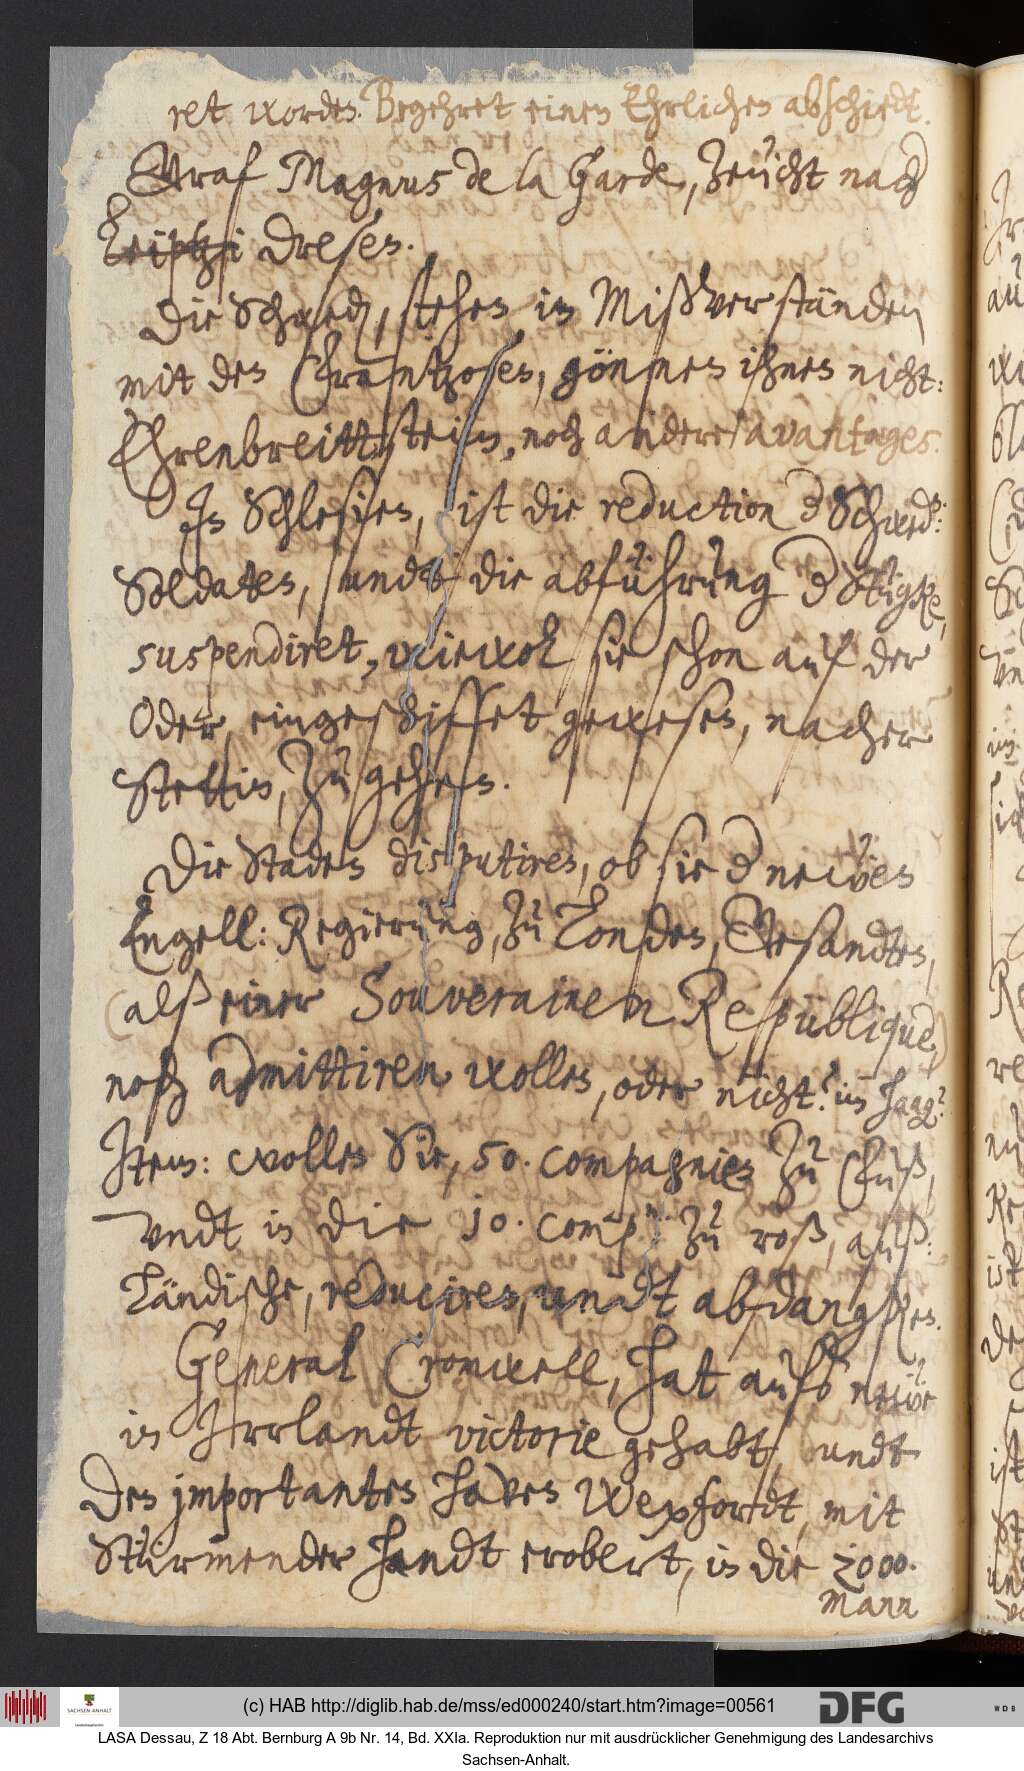 ret worden. Begehret einen Ehrlichen abschiedt.
Graf Magnus de la Garde, zeücht nach
Leiptzi Dresen.
Die Schwed, stehen in Mißverständen
mit den Frantzosen, gönnen ihnen nicht:
Ehrenbreittstein, noch andere avantages.
In Schlesien, ist die reduction d Schwed:
Soldaten, undt die abführung d Stügke,
suspendiret, wiewol sie schon auf der
Oder, eingeschiffet gewesen, nacher
Stettin, zu gehen.
Die Staden disputiren, ob sie d neẅen
Engell: Regierung, zu Londen, Gesandten,
(alß einer Souverainen Republique)
noch admittiren wollen, oder nicht? im Haag?
Item: wollen Sie, 50. compagnien zu Fuß,
undt in die 10. comp: zu roß, auß:
Ländische, reduciren, undt abdangken.
General Cromwell, hat aufs neẅe
in Irrlandt victorie gehabt, undt
den importanten haven Wexfordt, mit
Stürmender handt erobert, in die 2000.
Mann
(c) HAB http://diglib.hab.de/mss/ed000240/start.htm?image=00561
SACHSEN-ANHALT
DFG
WDB
LASA Dessau, Z 18 Abt. Bernburg A 9b Nr. 14, Bd. XXIa. Reproduktion nur mit ausdrücklicher Genehmigung des Landesarchivs
Sachsen-Anhalt.